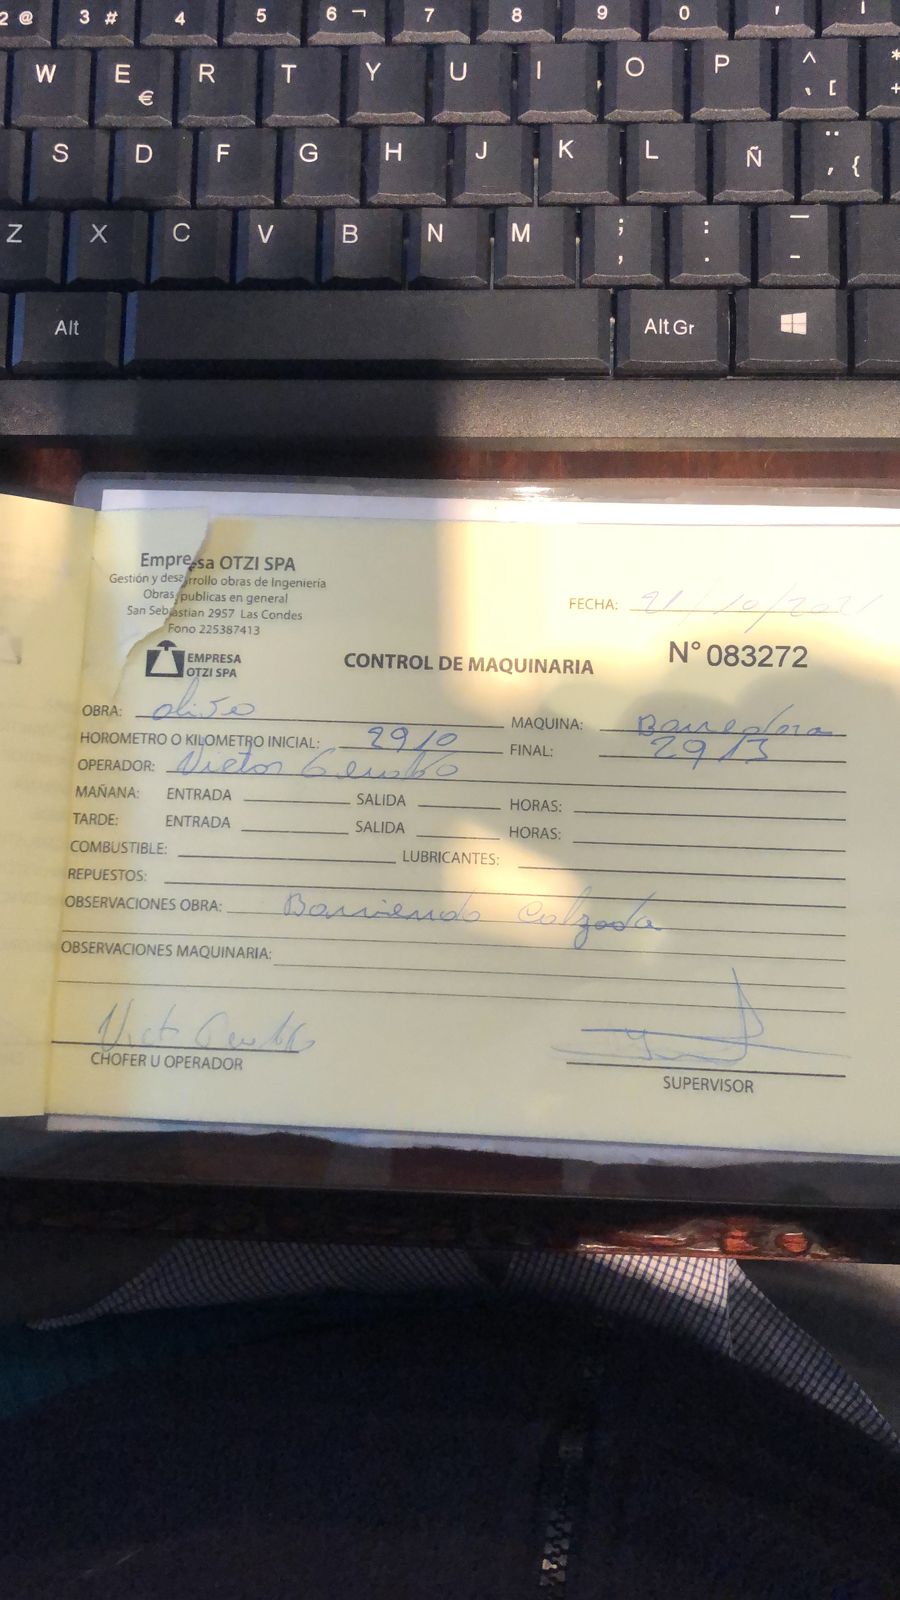 2 @ 3 # 4 5 6 ¬ 7 8 9 0 '
W E € R T Y U I O P ^ ` [ * +
S D F G H J K L Ñ ¨ ´ {
Z X C V B N M ; , : . _ -
Alt Alt Gr
Empresa OTZI SPA
Gestión y desarrollo obras de Ingeniería
Obras publicas en general
San Sebastian 2957 Las Condes
Fono 225387413
EMPRESA
OTZI SPA
FECHA: 21/10/2021
CONTROL DE MAQUINARIA N° 083272
OBRA: olivo MAQUINA: Barredora
HOROMETRO O KILOMETRO INICIAL: 2910 FINAL: 2913
OPERADOR: Victor
MAÑANA: ENTRADA SALIDA HORAS:
TARDE: ENTRADA SALIDA HORAS:
COMBUSTIBLE: LUBRICANTES:
REPUESTOS:
OBSERVACIONES OBRA: Barriendo Calzada
OBSERVACIONES MAQUINARIA:
CHOFER U OPERADOR
SUPERVISOR